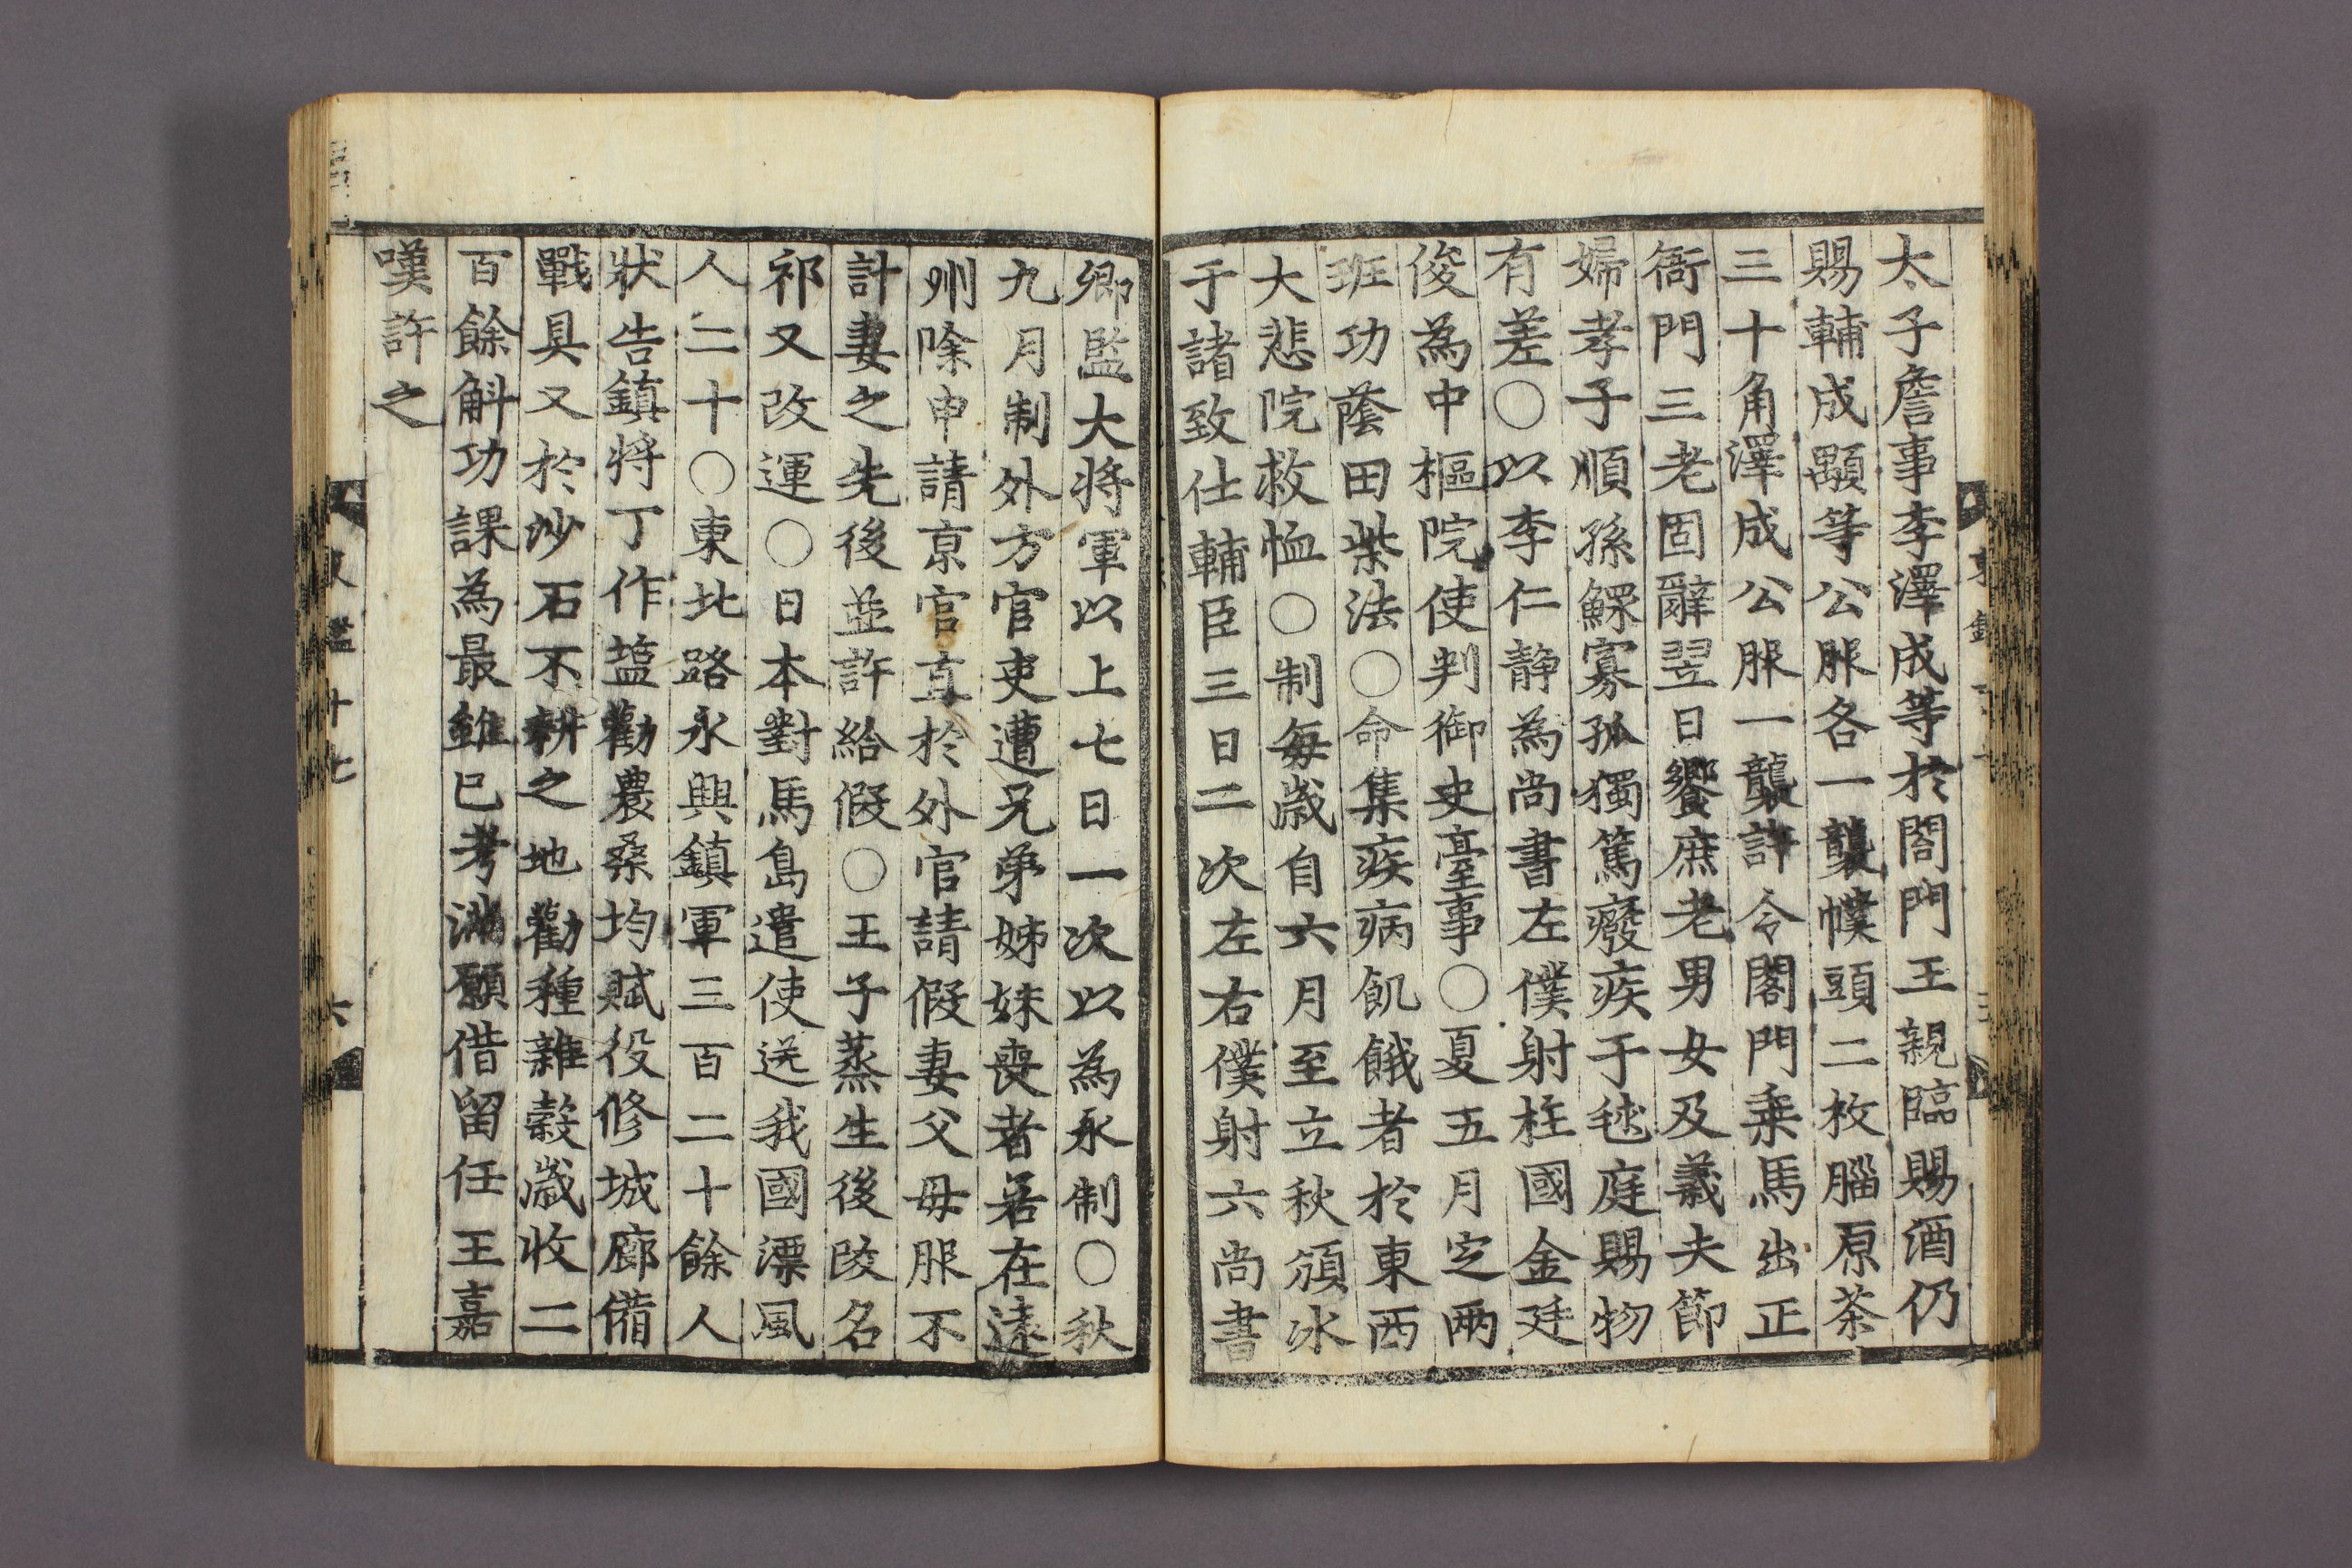 太子詹事李澤成等於閤門王親臨賜酒仍
賜輔成顯等公服各一襲幞頭二枚腦原茶
三十角澤成公服一襲許令閤門乗馬出正
衙門三老固辭翌日饗庶老男女及義夫節
婦孝子順孫鰥寡孤獨篤癈疾于毬庭賜物
有差○以李仁静為尚書左僕射柱國金廷
俊為中樞院使判御史臺事○夏五月定兩
班功蔭田柴法○命集疾病飢餓者於東西
大悲院救恤○制毎歲自六月至立秋頒冰
于諸致仕輔臣三日二次左右僕射六尚書
卿監大将軍以上七日一次以為永制○秋
九月制外方官吏遭兄弟姊妹喪者若在遠
州除申請京官直於外官請假妻父母服不
計妻之先後並許給假○王子蒸生後改名
祁又改運○日本對馬島遣使送我國漂風
人二十○東北路永興鎮軍三百二十餘人
狀告鎮将丁作塩勸農桑均賦役修城廊備
戰具又於沙石不耕之地勸種雜穀歲收二
百餘斛功課為最雖已考滿願借留任王嘉
嘆許之
鑑十七
六